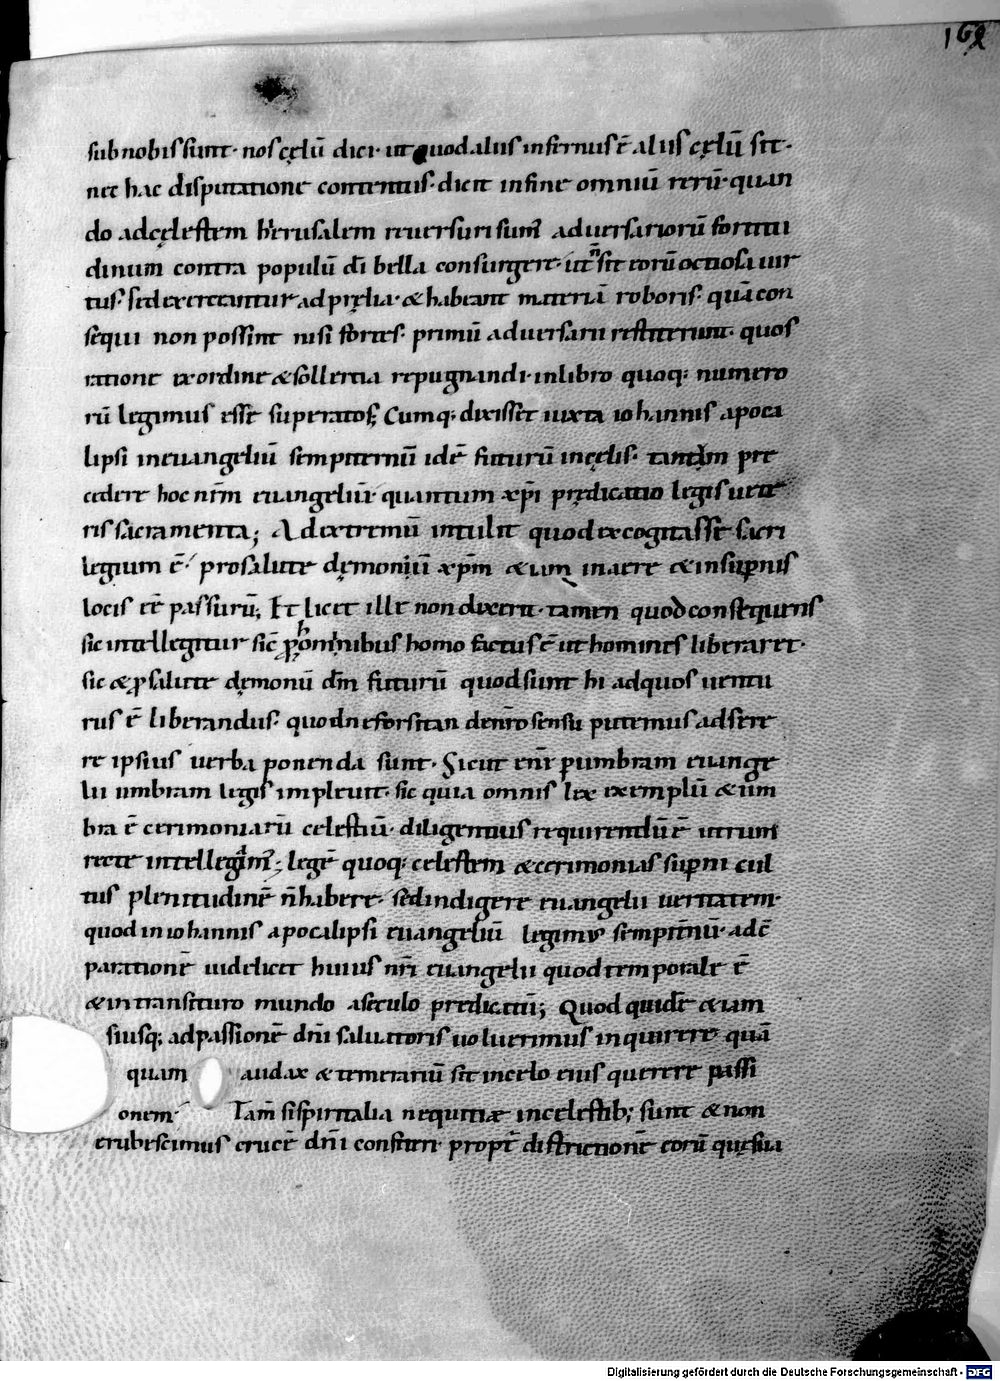 162
sub nobis sunt· nos cęlū dici· ut quod aliis infernus ē aliis cęlū sit·
nec hac disputatione contentus· dicit in fine omniū rerū· quan
do ad cęlestem hierusalem reuersuri sum' aduersariorū fortitu
dinum contra populū dī bella consurgere· ut n̄ sit eorū ociosa uir
tus· sed exerceantur ad pręlia· & habeant materiā roboris· quā con
sequi non possint nisi fortes· primū aduersarii restiterunt· quos
ratione & ordine & sollertia repugnandi· in libro quoq; numero
rū legimus esse superatos; Cumq; dixisset iuxta iohannis apoca
lipsi in euangeliū sempiternū idē futurū in cęlis· tantum pre
cedere hoc nr̄m euangeliū· quantum xp̄i prędicatio legis uete
ris sacramenta; Ad extremū intulit quod & cogitasse sacri
legium ē· pro salute dęmoniū xp̄m & iam in aere & in sup̄nis
locis eē passurū; Et licet ille non dixerit· tamen quod consequens
sic intellegitur sic̄ p hominibus homo factus ē ut homines liberaret·
sic & p salute dęmonū dm̄ futurū quod sunt hi ad quos uentu
rus ē liberandus· quod ne forsitan de nr̄o sensu putemus adsere
re ipsius uerba ponenda sunt· Sicut enī p umbram euange
lii umbram legis impleuit· sic quia omnis lex exemplū & um
bra ē cerimoniarū celestiū· diligentius requirendū ē utrum
recte intellegam'; legē quoq; celestem & cerimonias sup̄ni cul
tus plenitudinē n̄ habere· sed indigere euangelii ueritatem·
quod in iohannis apocalipsi euangeliū legimus sempit̄nū· ad cō
parationē uidelicet huius nr̄i euangelii quod temporale ē
& in transituro mundo a seculo predicatū; Quod quidē & iam
si usq; ad passionē dn̄i saluatoris uoluerimus inquirere quā
quam audax & temerariū sit in celo eius querere passi
onem· Tam̄ si spiritalia nequitiæ in celestib; sunt & non
erubescimus crucē dn̄i confiteri· propt̄ districtionē eorū que sua
Digitalisierung gefördert durch die Deutsche Forschungsgemeinschaft - DFG